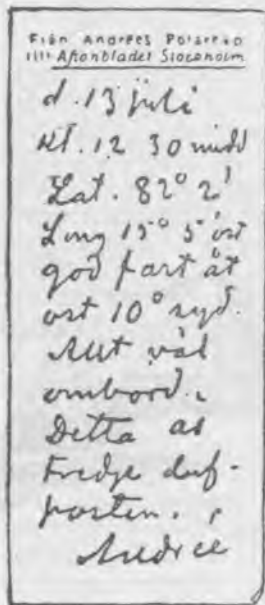 Från Andrées Polarexp
till Aftonbladet Stockholm
d. 13 juli
kl. 12 30 midd
Lat. 82° 2'
Long 15° 5' ost
god fart åt
ost 10° syd.
Allt väl
ombord.
Detta är
tredje duf-
posten.
Andrée